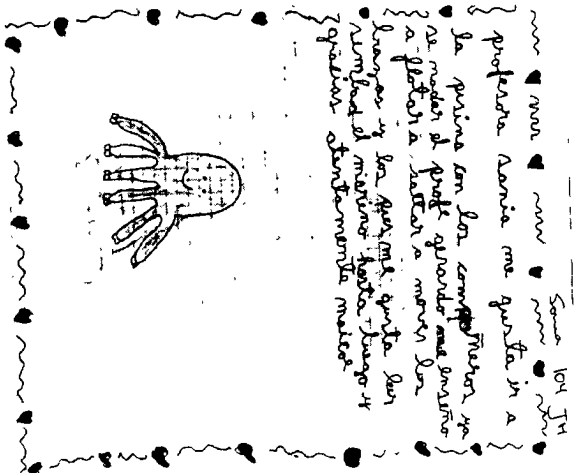 Sonia 104 JM
profesora sania me gusta ir a
la pisina con los compañeros ya
se nadar el profe gerardo me enseño
a flotar a saltar a mover los
brazos y los pies me gusta leer
simbad el marino hasta luego y
gracias atentamente maicol